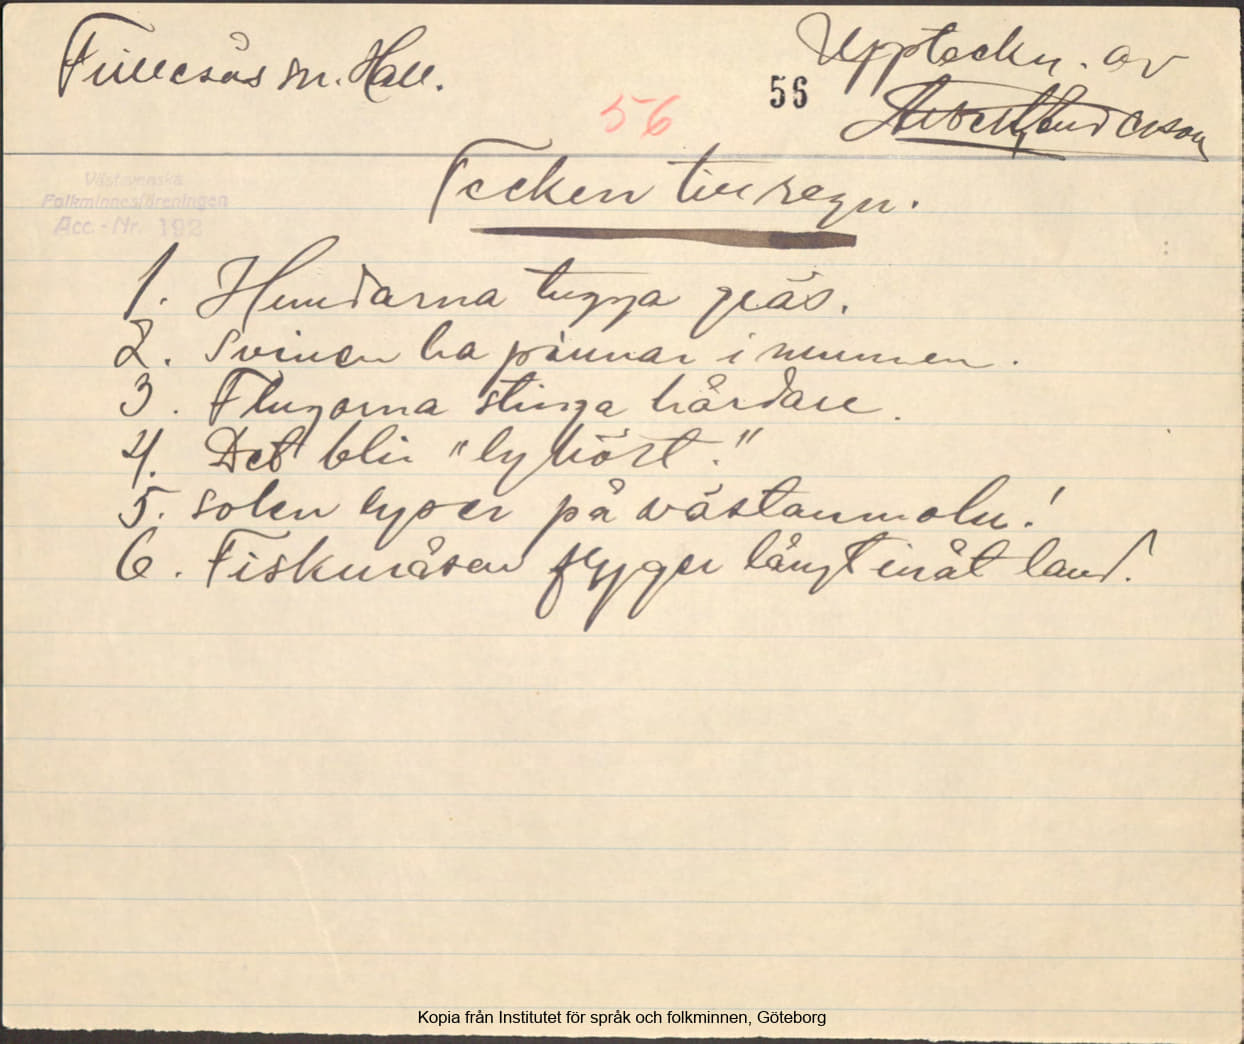 Fjällsås sn. Hall.
Uppteckn. av
56
56
Andersson
Tecken till regn.
Västsvenska
Folkminnesföreningen
Acc.-Nr. 192
1. Hundarna tugga gräs.
2. Svinen ha pinnar i munnen.
3. Flugorna stinga hårdare.
4. Det blir "lyhört."
5. Solen lyser på västanmoln!
6. Fiskmåsen flyger långt inåt land.
Kopia från Institutet för språk och folkminnen, Göteborg